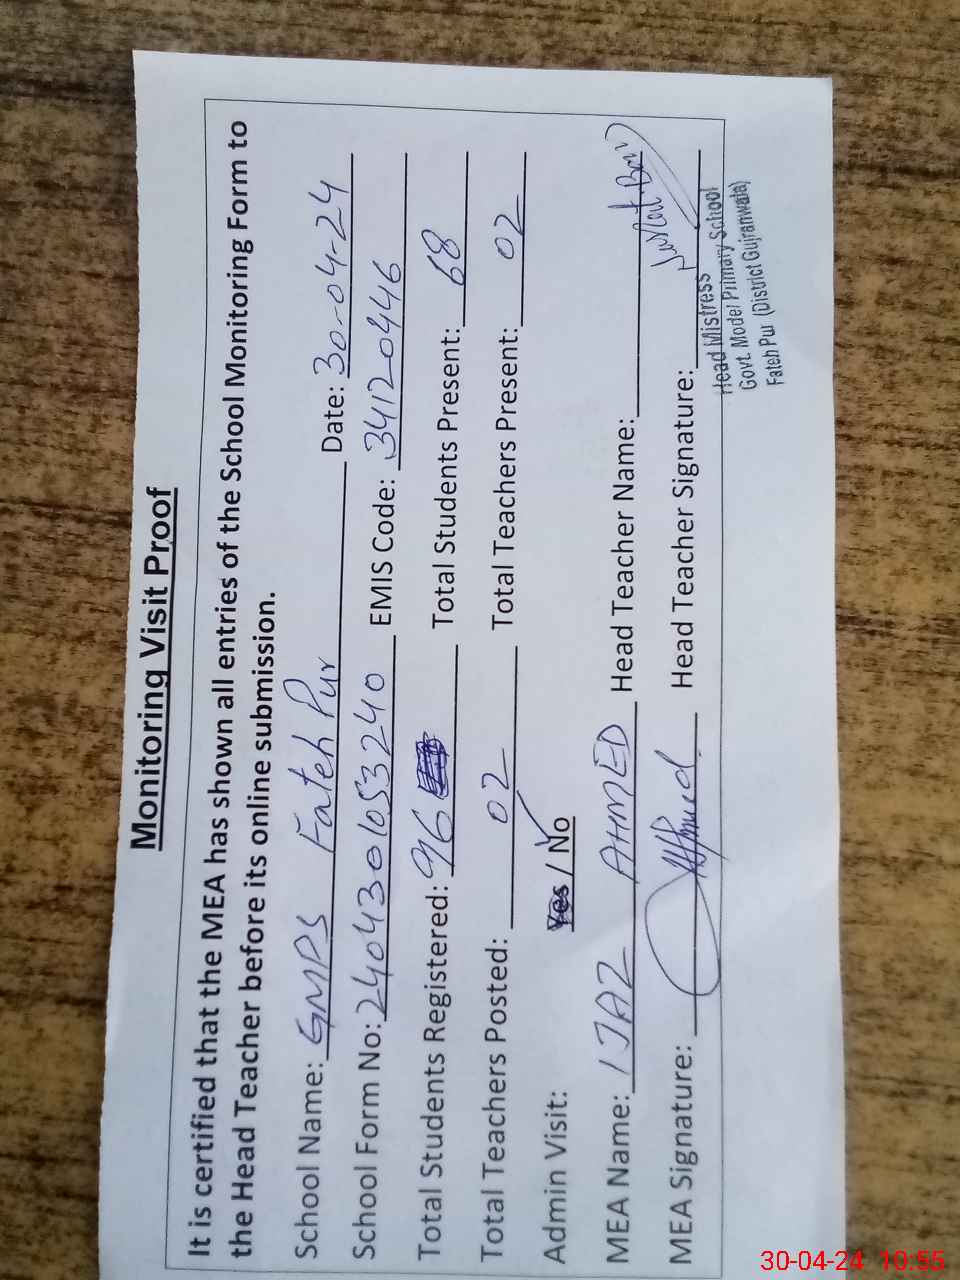 Monitoring Visit Proof
It is certified that the MEA has shown all entries of the School Monitoring Form to
the Head Teacher before its online submission.
School Name: GMPS Fateh Pur Date: 30-04-24
School Form No: 2404301053240 EMIS Code: 34120446
Total Students Registered: 96 Total Students Present: 68
Total Teachers Posted: 02 Total Teachers Present: 02
Admin Visit: Yes / No
MEA Name: IJAZ AHMED Head Teacher Name:
MEA Signature: Head Teacher Signature:
Head Mistress
Govt. Model Primary School
Fateh Pur (District Gujranwala)
30-04-24 10:55